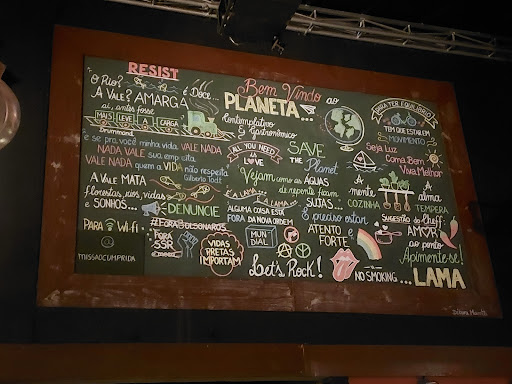 RESIST
O RIO? É DOCE...
A VALE? AMARGA
ai, antes fosse
MAIS LEVE A CARGA
Drummond
e se pra você minha vida VALE NADA
NADA VALE sua empresa
VALE NADA quem a VIDA não respeita
Gilberto
A VALE MATA
florestas, rios, vidas
e SONHOS...
DENUNCIE
PARA Wi-fi
MISSAOCUMPRIDA
#FORABOLSONARO
VIDAS
PRETAS
IMPORTAM
Bem Vindo ao
PLANETA...
Contemplativo
& Gastronômico
ALL YOU NEED
IS
LOVE
SAVE
THE
Planet
Vejam como as ÁGUAS
de repente ficam
SUJAS...
É A LAMA...
É A LAMA...
ALGUMA COISA ESTÁ
FORA DA NOVA ORDEM
MUN
DIAL
É preciso estar
ATENTO
& FORTE
Let's Rock!
NO SMOKING...
LAMA
PARA TER EQUILÍBRIO
TEM QUE ESTAR EM
MOVIMENTO
Seja Luz
Coma Bem
Viva Melhor
A
mente
COZINHA
A
alma
TEMPERA
SUGESTÃO do Cheff:
AMOR
ao ponto
Apimente-se!